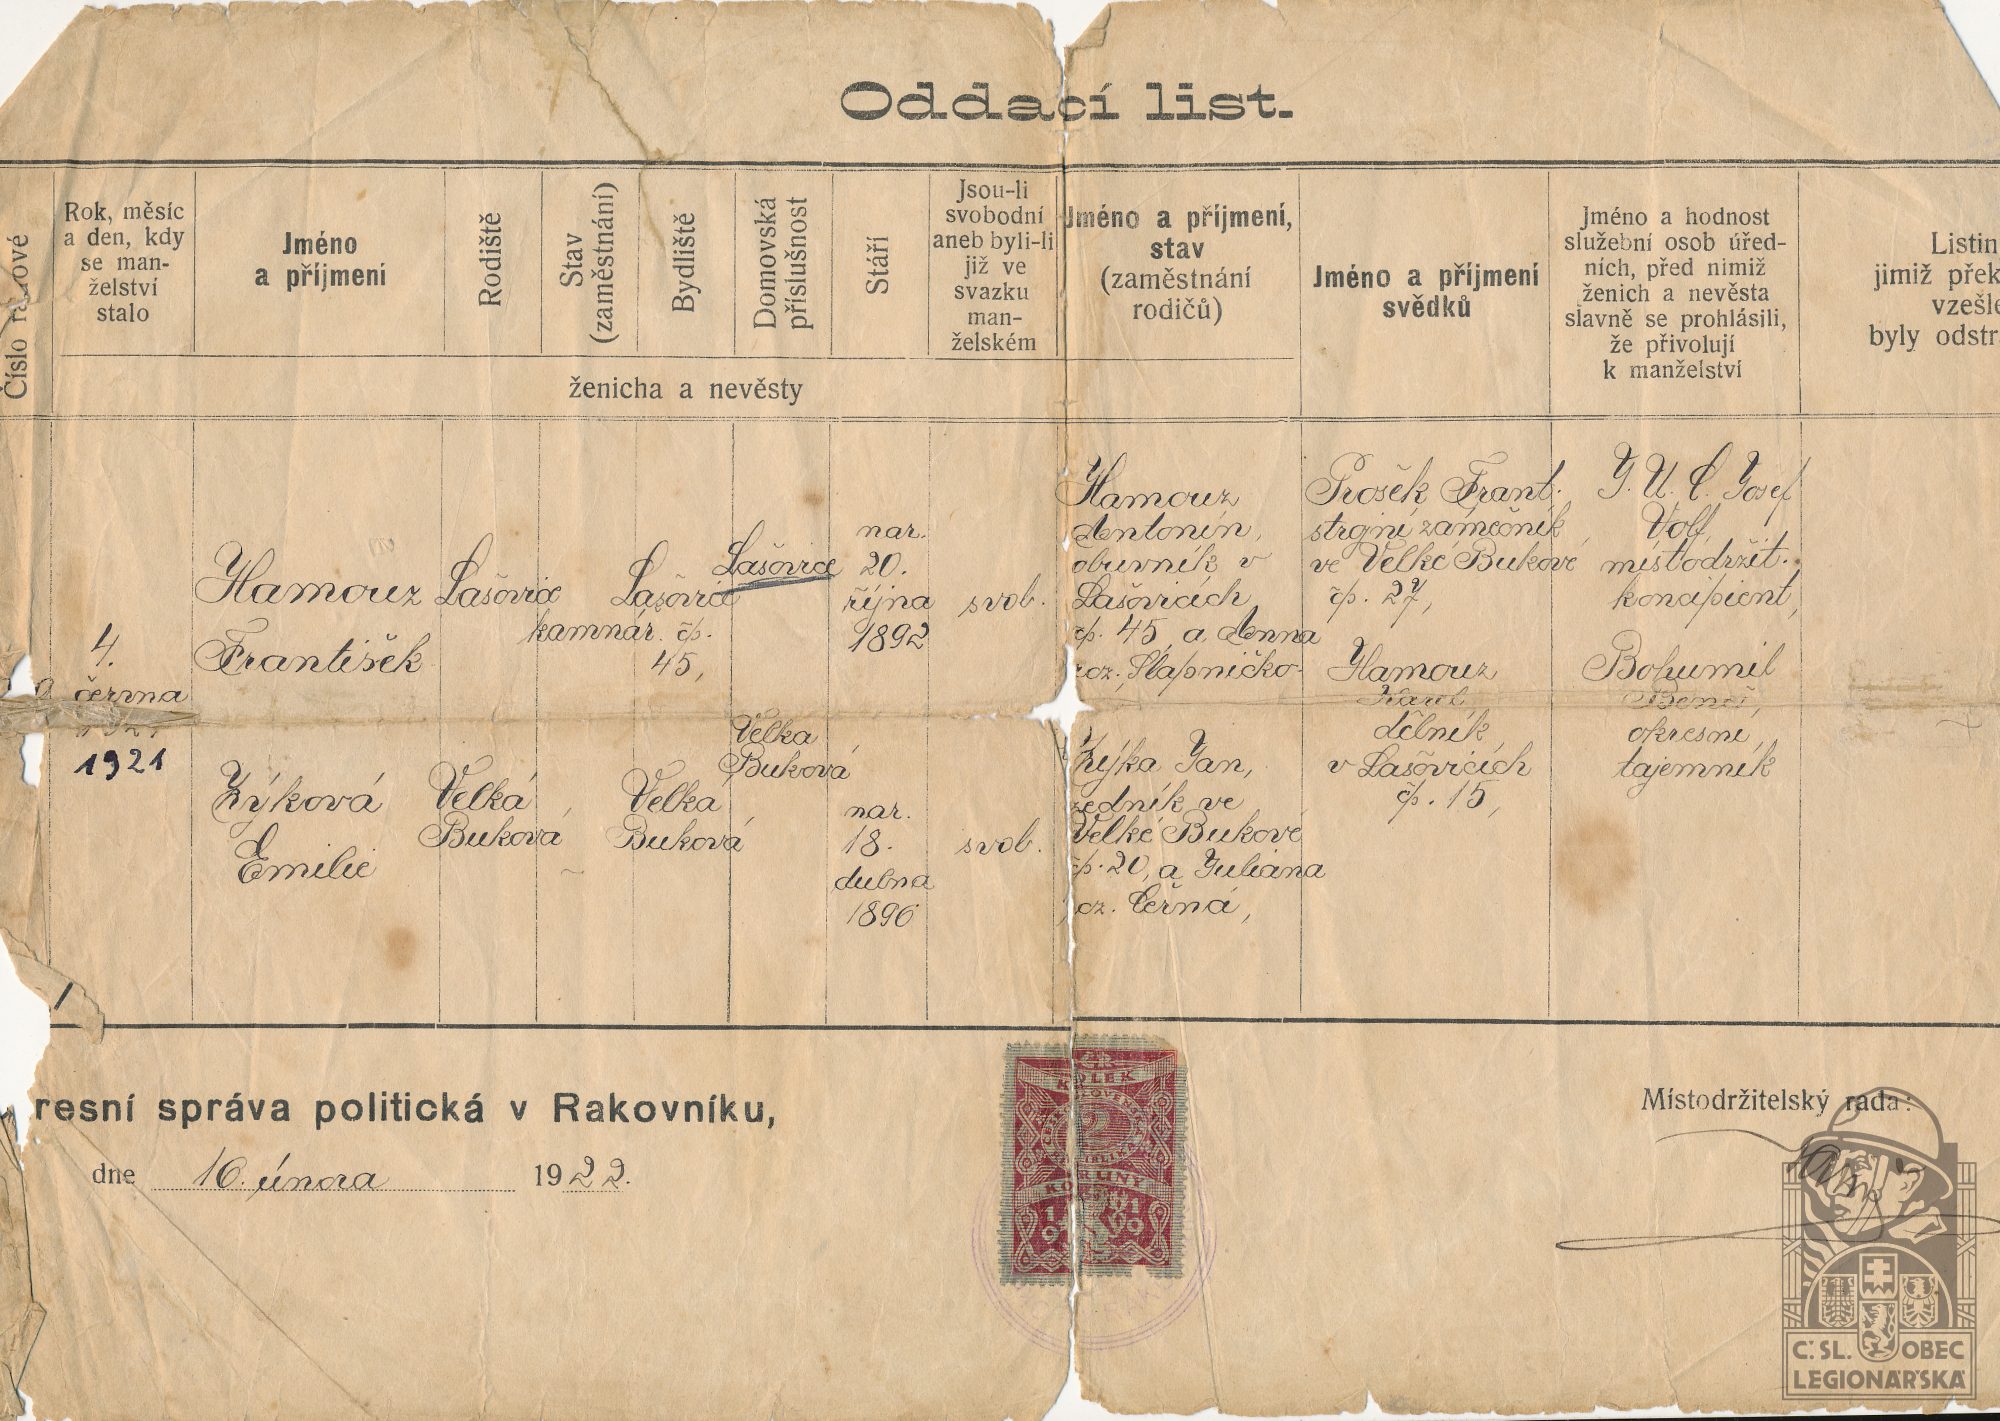 Oddací list.
Číslo řadové
Rok, měsíc
a den, kdy
se man-
želství
stalo
Jméno
a příjmení
Rodiště
Stav
(zaměstnání)
Bydliště
Domovská
příslušnost
Stáří
Jsou-li
svobodní
aneb byli-li
již ve
svazku
man-
želském
ženicha a nevěsty
Jméno a příjmení,
stav
(zaměstnání
rodičů)
Jméno a příjmení
svědků
Jméno a hodnost
služební osob úřed-
ních, před nimiž
ženich a nevěsta
slavně se prohlásili,
že přivolují
k manželství
Listin
jimiž přek
vzešle
byly odstr
4.
června
1921
Hamouz
František
Lašovice
kamnář.
Lašovice
čp.
45,
Lašovice
nar.
20.
října
1892
svob.
Hamouz
Antonín,
obuvník v
Lašovicích
čp. 45, a Anna
roz. Slapničko-
Prošek Frant.
strojní zámečník
ve Velké Bukové
čp. 27,
Hamouz
Karel,
dělník
v Lašovicích
čp. 15,
J. U. C. Josef
Volf,
místodržit.
koncipient,
Bohumil
okresní
tajemník
Zýková
Emilie
Velká
Buková
~
Velka
Buková
Velka
Buková
nar.
18.
dubna
1896
svob.
Zýka Jan,
zedník ve
Velké Bukové
čp. 20, a Juliana
roz. Černá,
resní správa politická v Rakovníku,
dne 16. února 1922.
Místodržitelský rada:
KOLEK
ČESKOSLOVENSKÁ
REPUBLIKA
2
KORUNY
1919
Č. SL. OBEC
LEGIONÁŘSKÁ